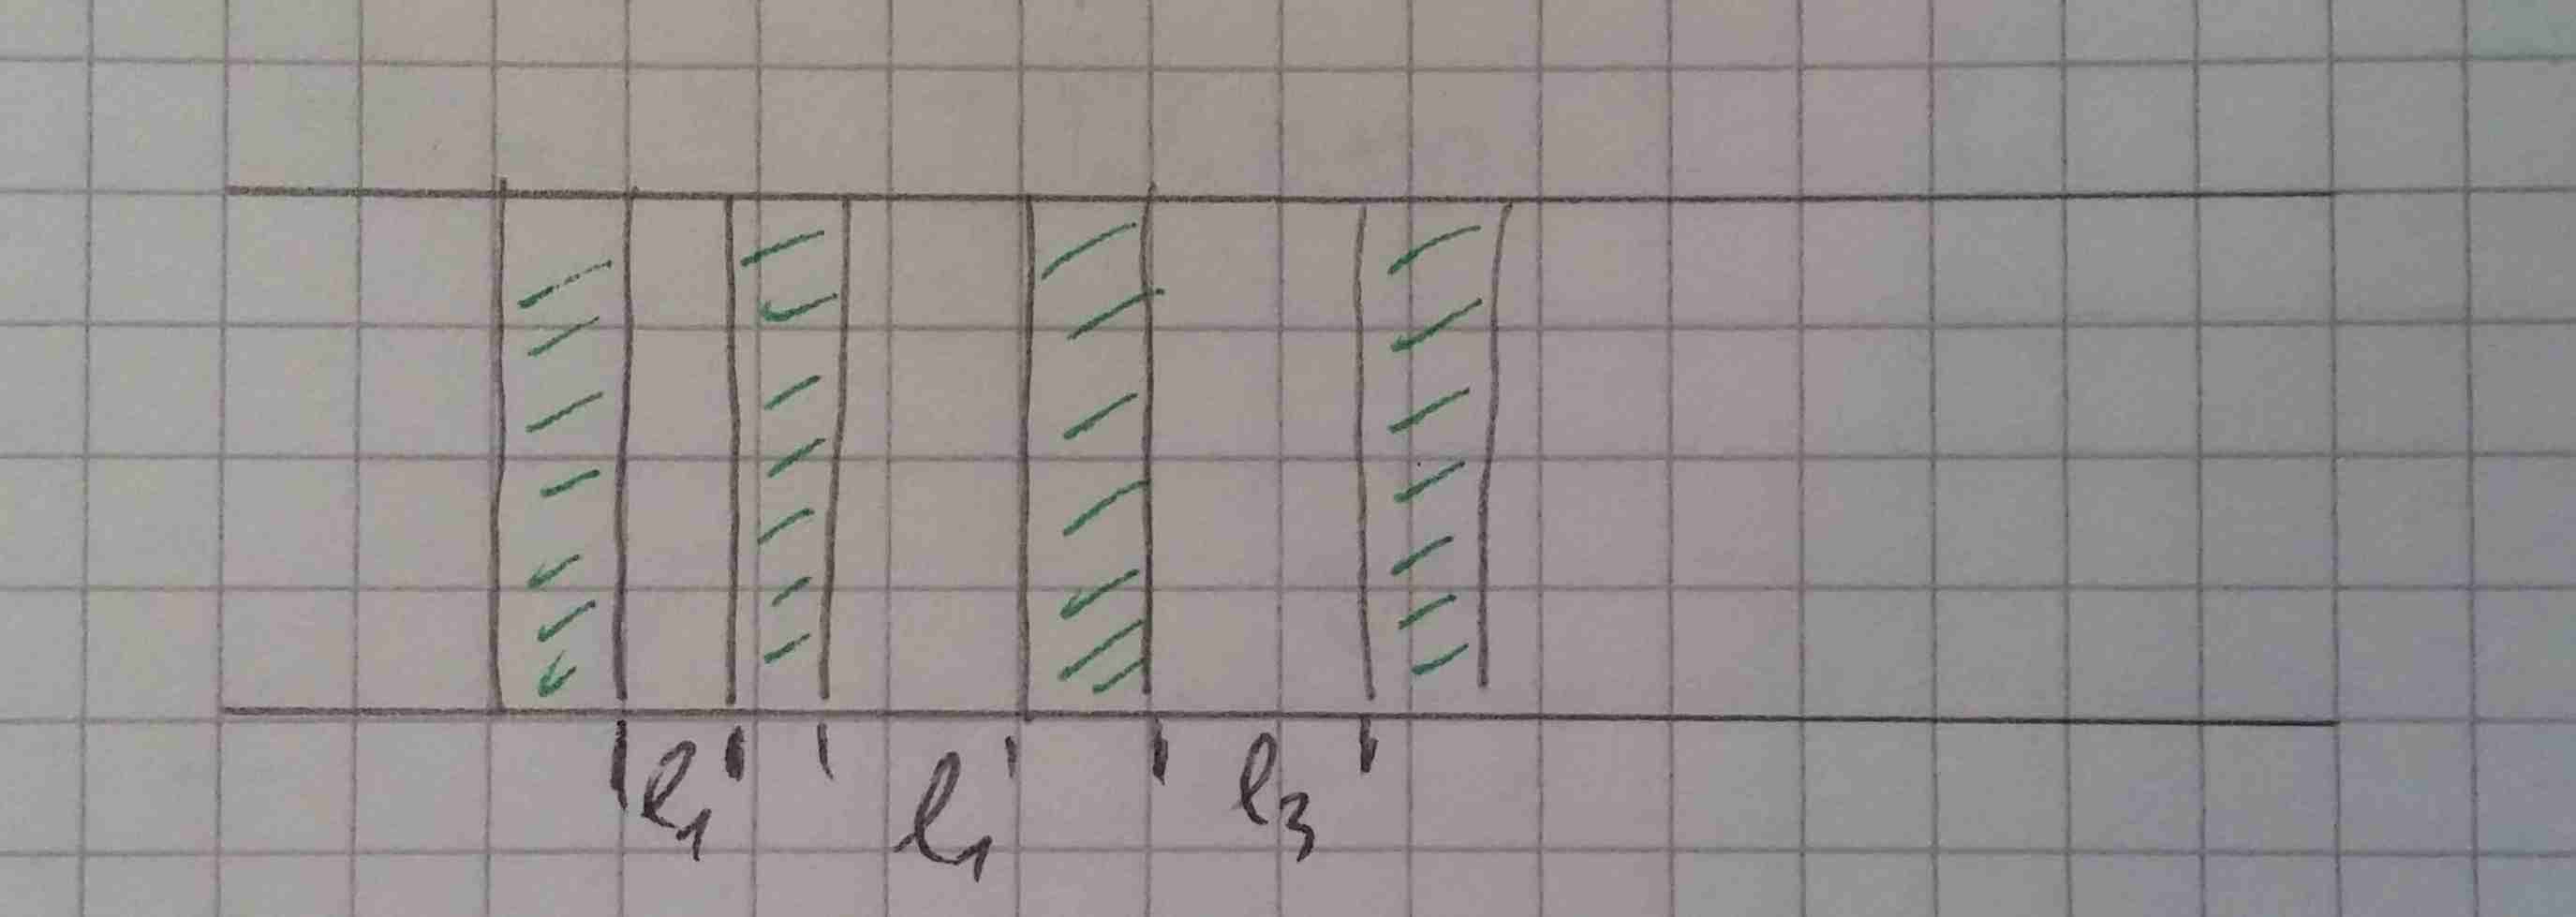 l₁ l₁ l₃